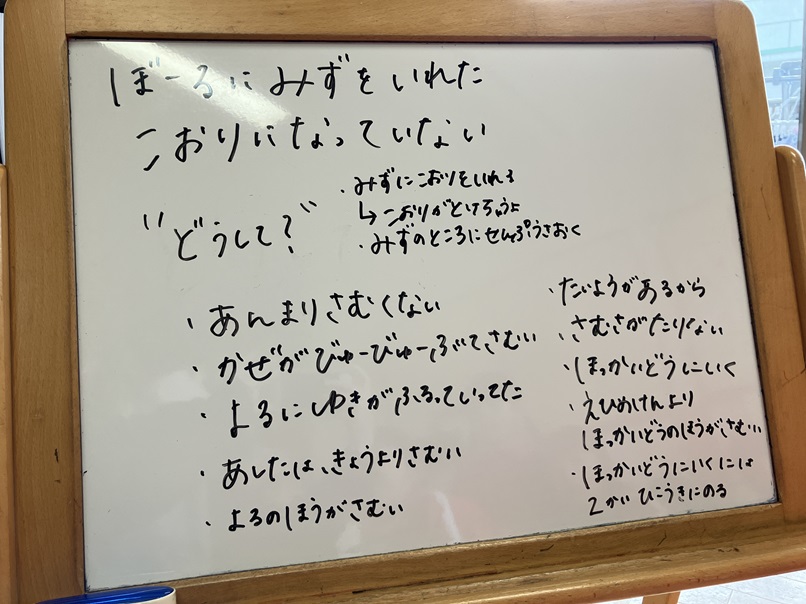 ぼーるにみずをいれた
こおりになっていない
"どうして?"
・みずにこおりをいれる
↳こおりがとけちゃうよ
・みずのところにせんぷうきおく
・あんまりさむくない
・かぜがびゅーびゅーふいてさむい
・よるにゆきがふるっていってた
・あしたは、きょうよりさむい
・よるのほうがさむい
・たいようがあるから
・さむさがたりない
・ほっかいどうにいく
・えひめけんより
ほっかいどうのほうがさむい
・ほっかいどうにいくには
2かいひこうきにのる